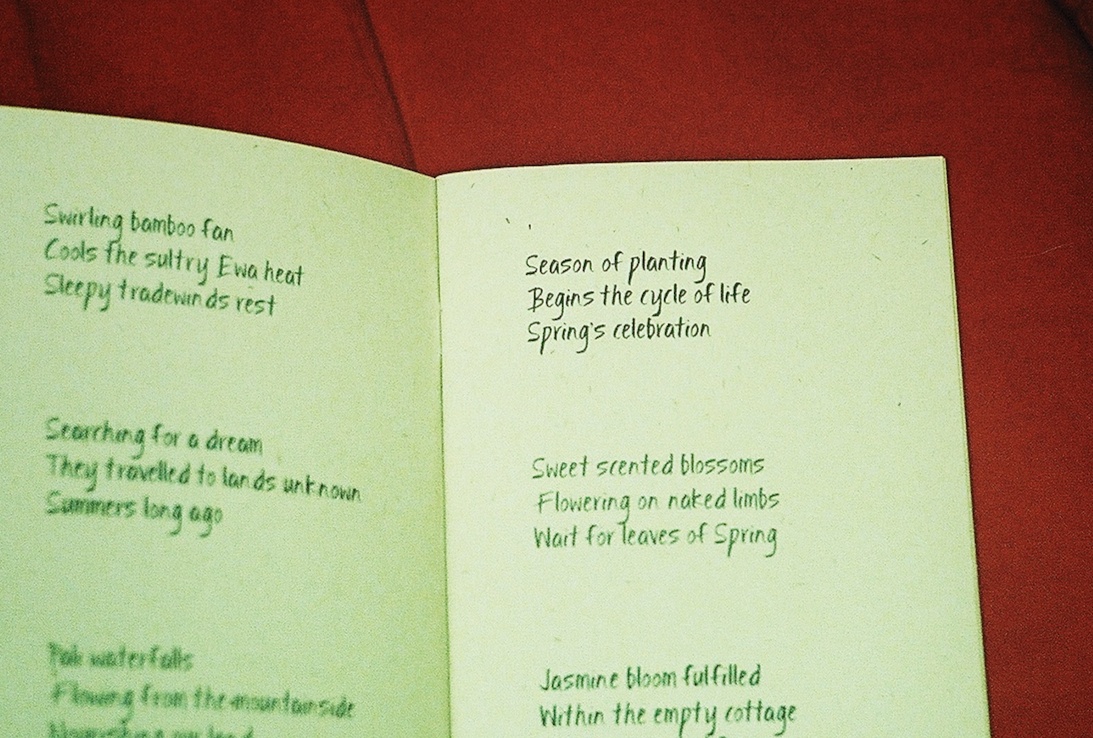 Swirling bamboo fan
Cools the sultry Ewa heat
Sleepy tradewinds rest
Searching for a dream
They travelled to lands unknown
Summers long ago
Pali waterfalls
Flowing from the mountainside
Nourishing our land
Season of planting
Begins the cycle of life
Spring's celebration
Sweet scented blossoms
Flowering on naked limbs
Wait for leaves of Spring
Jasmine bloom fulfilled
Within the empty cottage